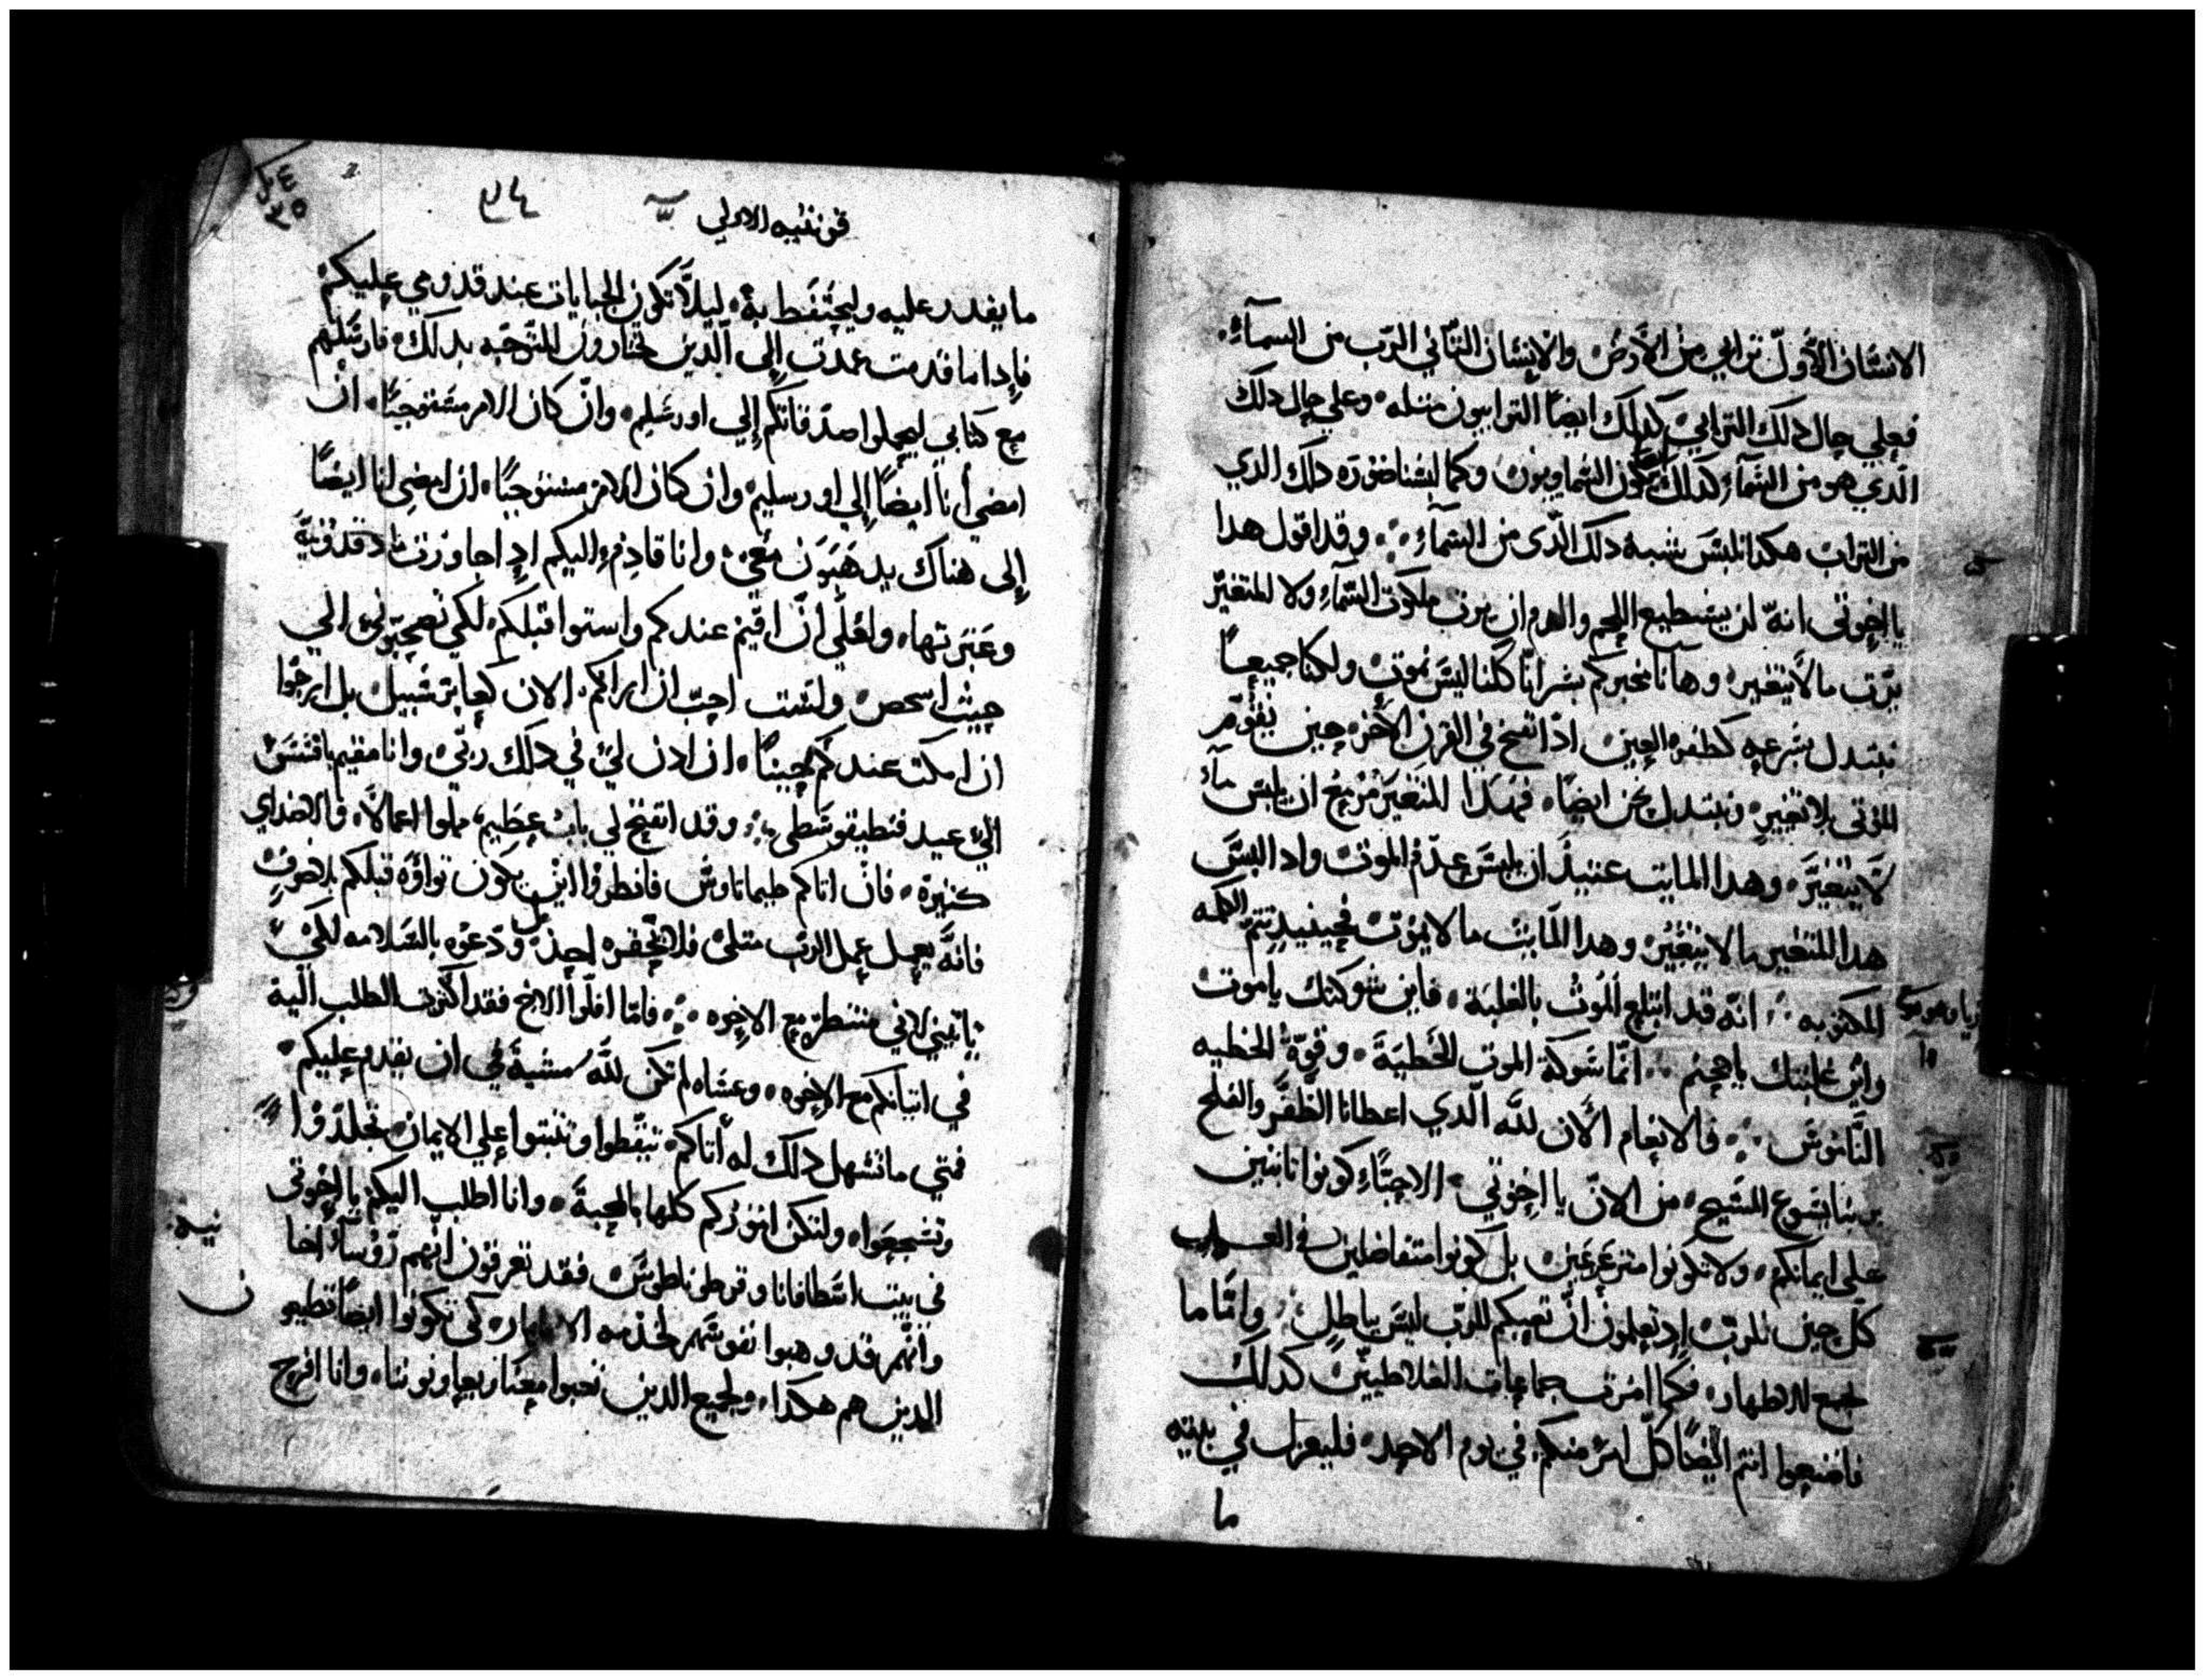 الانسان الأوّل ترابي من الأرض والإنسان الثاني الرّب من السمآءِ
فعلي حال ذلك الترابيّ كذلك ايضًا الترابيون مثله وعلي حال ذلك
الّدي هو من السَمآءِ كذلك يكون السَماويون وكما لبسْنا صَورَة ذلك الذي
من التراب هكدا نلبسَ شبه ذلك الدّى من السَمآءِ وقد اقول هدا
يا اخوتى انهّ لن يستطيع اللحم والدم ان يرث ملكوت السَمآءِ ولا المتغيّر
يرّث ما لا يتغير وهآنا مخبركم بسَر انّا كلنا ليسَ نموت ولكنا جميعًا
نبتدل بسَرعه كطفره العين ادا نفخ في القرن الأخر حين يقوم
المؤتى بلا تغيير ونبتدل نحن ايضًا فهدا المتغيَر مزمع ان يلبسَ ما
لا يتغيَّر وهدا المايت عتيدًا ان يلبسَ عدَم الموت واد البسَ
هدا المتغير ما لا يتغيَّر وهدا المَايت ما لا يمَوت فحينيدٍ تتم الكلمه
المكتوبه انهّ قد ابتلع المَوتُ بالغلبَة فاين شوكتك ياموت
واين غلبتك ياجحيم انّما شوكة الموت الخَطيَة وقوّة الخطيه
النَّاموسَ فالانعام الأن للّه الّدي اعطانا الظَفَر والفلح
بربنا يسَوع المسَيح من الانّ يا اخوتي الاحبَّاءِ كونوا ثابتين
علي ايمانكم ولا تكونوا متزعزعين بل كونوا متفاضلين في العـمل
كلّ حين للربّ اد تعلمون انّ تعبكم للربّ ليسَ باطلٍ وامَّا ما
لجمع للاطهار فكما امَرت جماعات الغلاطيين كدلك
فاصنعوا انتم ايضًا كلّ امرٍ منكم في يوم الاحد فليعزل في بيته
ما
قرنثيه الاولي
ما يقدر عليه وليحتفَط بهِ ليلا تكون الجبايات عند قدومي عليكم
فإدا ما قدمت عمدت إلى الدين تختارون للتوجّه بدلك فارسَلهم
مع كتابي ليحملوا صدَقاتكم إلي اورسَليم وانّ كان الامر مستوجبًا ان
امضي أنا ايضًا إلي اورسليم وان كان الامر مستوجبًا ان امضي انا ايضًا
إلى هناك يدهَبَون مَعي وانا قادم اليكم إدا جاوزت ماقدونيّة
وعَبَرتها ولعَلي أنّ اقيم عندكم واستوا قبلكم لكي تصحبَوني الي
حيث اسخص ولسَت احبّ ان اراكم الان كعابر سَبيل بل ارجوا
ان امكت عندكم حينًا ان ادن ليَ في دلك ربّي وانا مقيم بافسَسَ
اليّ عيد فنطيقوسَطى وقد انفتح لي باب عظيم مملوا اعمالًا والاضداي
كثيرة فان اتاكم طيماتاوسَ فانطروا اين يكون ثواؤه قبلكم بلا خوفٍ
فانهّ يعمل عمل الرّب متلى فلا يحقره احد بل ودعوه بالسَلامه لكي
ياتيني لاني منتطر مع الاخوه فامّا افلّوا الاخ فقد اكثرت الطلب اليه
في اتيانكم مع الاخوه وعسَاه لم تكن للّه مسَية في ان يقدم عليكم
فمتي ما تسَهل دلك له أتاكم تيقّطوا وتثبتوا علي الايمان تجلدّوا
وتسَجعوا ولتكن اموَركم كلها بالمحبة وانا اطلب اليكم يا اخوتى
في بيت اسَطافانا وفرطوناطوسَ فقد تعرفوَن انهم روَسآء اخا
وانهّم قد وهبوا نفوسَهم لخدمه الاطهار كي تكونوا ايضًا تطيعو
الدين هم هكدا ولجميع الدين تعبوا معَنا ويعاونونا وانا افرح